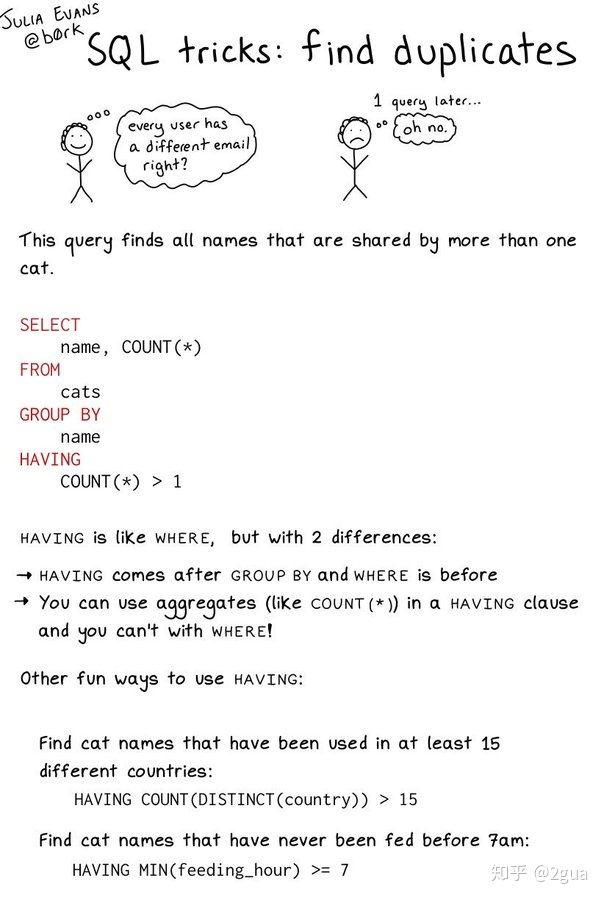 JULIA EVANS
@b0rk
SQL tricks: find duplicates
every user has
a different email
right?
1 query later...
oh no.
This query finds all names that are shared by more than one
cat.
SELECT
name, COUNT(*)
FROM
cats
GROUP BY
name
HAVING
COUNT(*) > 1
HAVING is like WHERE, but with 2 differences:
→ HAVING comes after GROUP BY and WHERE is before
→ You can use aggregates (like COUNT(*)) in a HAVING clause
and you can't with WHERE!
Other fun ways to use HAVING:
Find cat names that have been used in at least 15
different countries:
HAVING COUNT(DISTINCT(country)) > 15
Find cat names that have never been fed before 7am:
HAVING MIN(feeding_hour) >= 7
知乎 @2gua